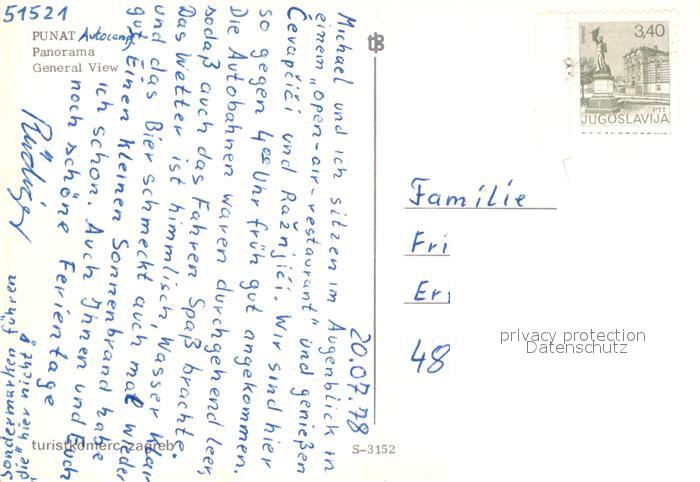 51521
PUNAT Autocamp
Panorama
General View
20.07.78
Michael und ich sitzen im Augenblick in
einem „open-air-restaurant" und genießen
Čevapčiči und Ražnjiči. Wir sind hier
so gegen 4⁰⁰ Uhr früh gut angekommen.
Die Autobahnen waren durchgehend leer,
sodaß auch das Fahren Spaß brachte.
Das Wetter ist himmlisch, Wasser klar
und das Bier schmeckt auch mal wieder
gut. Einen kleinen Sonnenbrand habe
ich schon. Auch Ihnen und Euch
noch schöne Ferientage
Rüdiger
die hier nicht
Sondermarken führen
turistkomerc zagreb
S-3152
3,40
PTT
JUGOSLAVIJA
Familie
Fri
Er
48
privacy protection
Datenschutz